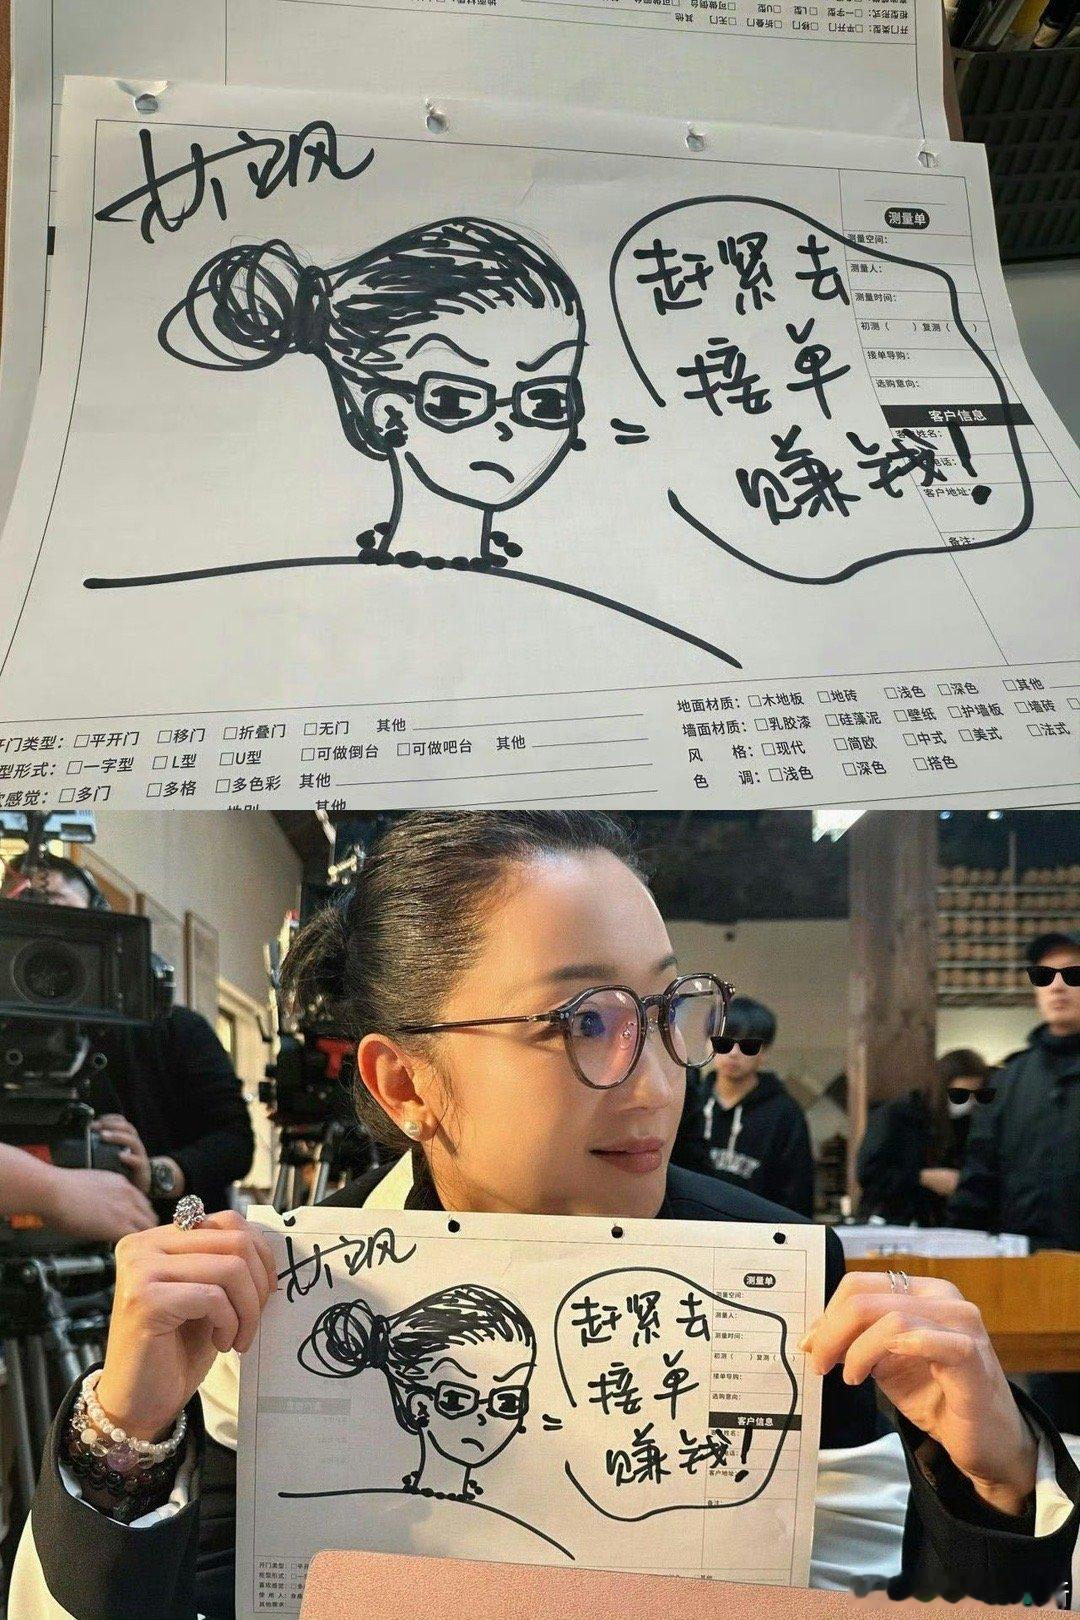 赶紧去
接单
赚钱！
=
测量单
测量空间：
测量人：
测量时间：
初测（ ）复测（ ）
接单导购：
选购意向：
客户信息
客户姓名：
电话：
客户地址：
备注：
开门类型：□平开门 □移门 □折叠门 □无门 其他
型形式：□一字型 □L型 □U型 □可做倒台 □可做吧台 其他
感觉：□多门 □多格 □多色彩 其他
地面材质：□木地板 □地砖 □浅色 □深色 □其他
墙面材质：□乳胶漆 □硅藻泥 □壁纸 □护墙板 □墙砖
风 格：□现代 □简欧 □中式 □美式 □法式
色 调：□浅色 □深色 □搭色
赶紧去
接单
赚钱！
=
测量单
测量空间：
测量人：
测量时间：
初测（ ）复测（ ）
接单导购：
选购意向：
客户信息
客户地址
备注：
开门类型：
柜型形式：